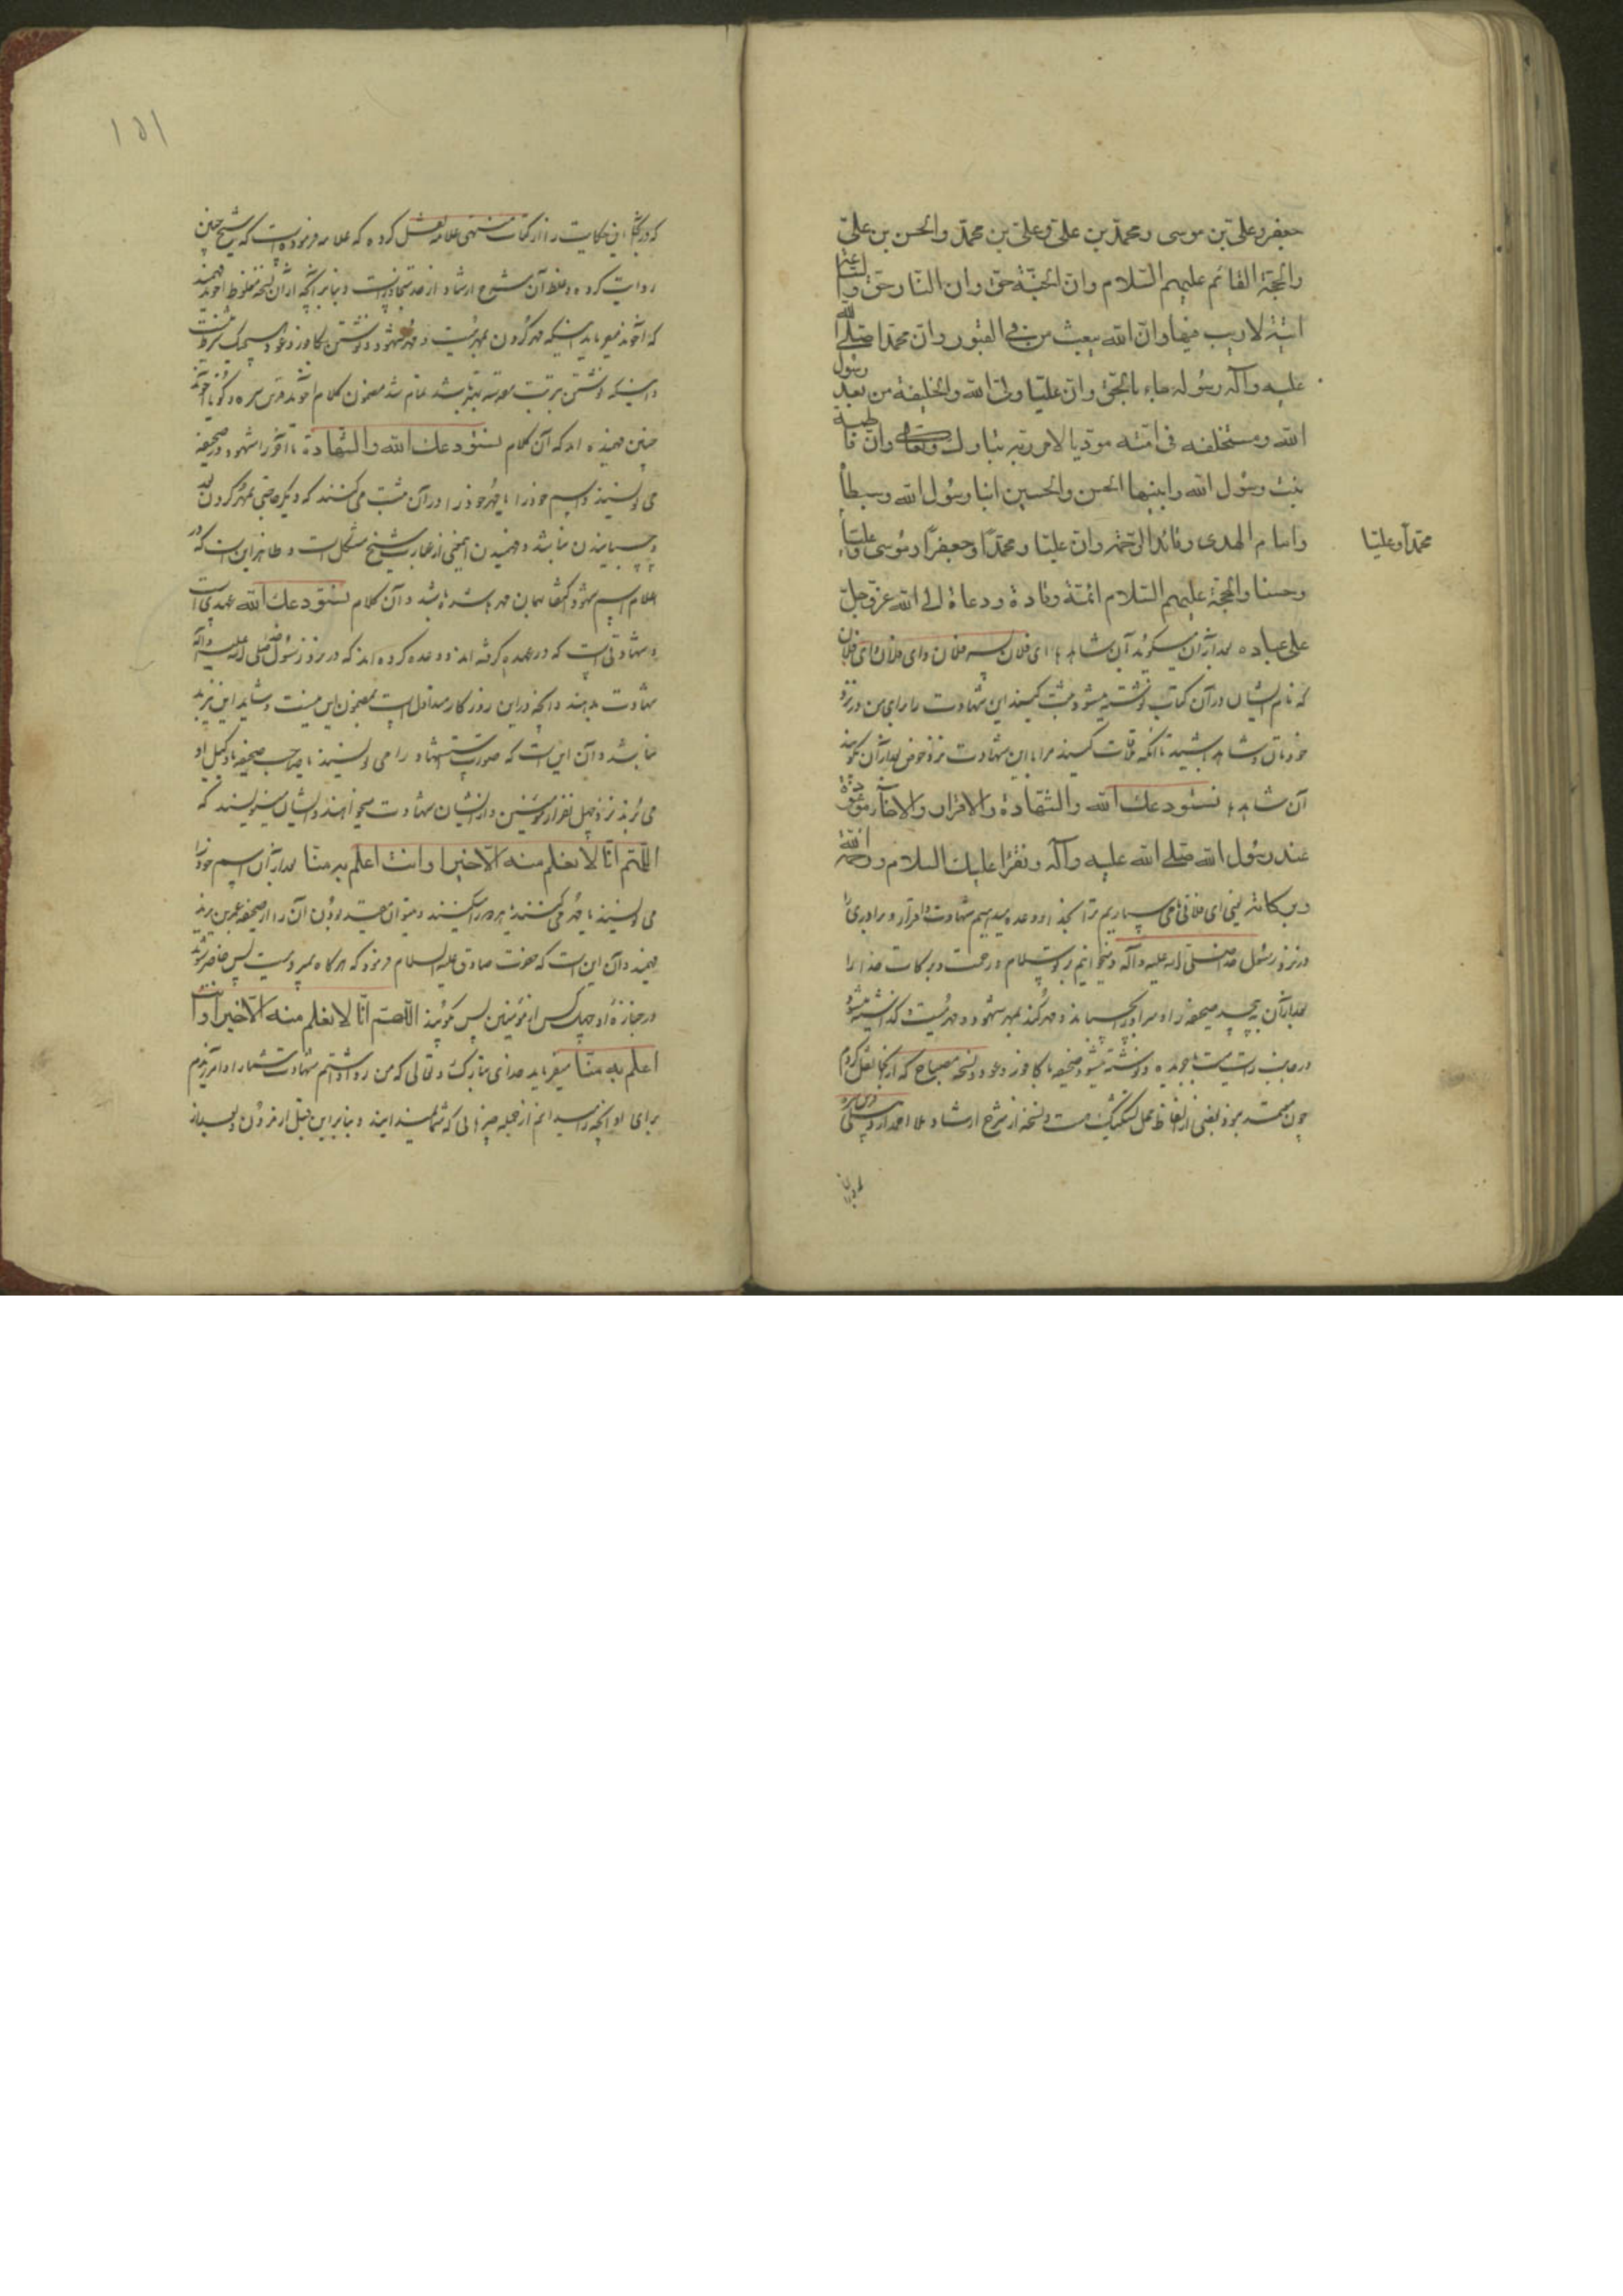 جعفر وعلی بن موسی ومحمد بن علی وعلی بن محمد والحسن بن علی
والحجة القائم علیهم السلام وان الجنة حق وان النار حق والساعة
آتیة لا ریب فیها وان الله یبعث من فی القبور وان محمدا صلی الله
علیه وآله رسوله جاء بالحق وان علیا ولی الله والخلیفة من بعد رسول
الله ومستخلفه فی امته مودیا لامر ربه تبارک وتعالی وان فاطمة
بنت رسول الله وابنیها الحسن والحسین ابنا رسول الله وسبطا
واماما الهدی وقائدا الرحمة وان علیا ومحمدا وجعفرا وموسی وعلیا
محمدا وعلیا
وحسنا والحجة علیهم السلام ائمة وقادة ودعاة الی الله عز وجل
علی عباده بعد از آن میگوید آن شاهد ای فلان پسر فلان وای فلان وای فلان
که نام ایشان در آن کتاب نوشته میشود ثبت کنید این شهادت را برای من در نزد
خودتان باشید تا آنکه ملاقات کنید مرا باین شهادت نزد حوض بعد از آن بگویند
آن شاهد نستودعک الله والشهادة والاقرار والاخاء موعودة
عند رسول الله صلی الله علیه وآله ونقرا علیک السلام ورحمة الله
وبرکاته یعنی ای فلانی می سپاریم ترا بخدا و وعده میدهیم شهادت واقرار وبرادری را
در نزد رسول خدا صلی الله علیه وآله ومیخوانیم بر تو سلام ورحمت وبرکات خدا را
بعد از آن پیچیده صحیفه را وسر او را بچسبانند ومهر کند بمهر شهود ومهر میت گذاشته میشود
در جانب راست میت با جریده ونوشته میشود صحیفه با کافور وعود ونسخه مصباح که از آنجا نقل کردم
چون معتمد نبود بعضی از الفاظ محل ونسخه از شرح ارشاد ملا احمد اردبیلی قدس سره
۱۵۱
که در این حکایت را از کتاب منتهی علامه نقل کرده که علامه فرموده است که شیخ چنین
روایت کرده وغلط آن شرح ارشاد از حد متجاوز است وبنابر آنچه از آن نسخه مغلوط آخوند فهمیده
که آخوند میفرماید اینکه مهر کردن بمهر میت ومهر شهود ونوشتن بکافور وعود
واینکه نوشتن بتربت معتبر باشد تمام شد مضمون کلام آخوند قدس سره وگویا آخوند
چنین فهمیده اند که آن کلام نستودعک الله والشهادة تا آخر را شهود در صحیفه
می نویسند واسم خود را با مهر خود را در آن ثبت می کنند که دیگر حاجتی بمهر کردن بعد
وچسبانیدن نباشد وفهمیدن این معنی از عبارت شیخ مشکل است وظاهر این است که در
اعلام اسم شهود اکتفا بهمان مهر باشد وآن کلام نستودعک الله عهدی است
وشهادتی است که در عهده گرفته اند و وعده کرده اند که در نزد رسول صلی الله علیه وآله
شهادت بدهند وآنچه در این روزگار متداول است بمضمون این نیست وشاید این نیز بد
نباشد وآن این است که صورت استشهاد را می نویسند یا صاحب صحیفه یا وکیل او
می برند نزد چهل نفر از مؤمنین واز ایشان شهادت میخواهند وایشان مینویسند که
اللهم انا لا نعلم منه الا خیرا وانت اعلم به منا بعد از آن اسم خود را
می نویسند یا مهر می کنند یا هر دو را میکنند ومیتوان معتمد بودن آن را از صحیفه
فهمید وآن این است که حضرت صادق علیه السلام فرمود که هرگاه بمیرد میت پس حاضر شوند
در جنازه او چهل کس از مؤمنین پس بگویند اللهم انا لا نعلم منه الا خیرا وانت
اعلم به منا میفرماید خدای تبارک وتعالی که من روا داشتم شهادت شما را وآمرزیدم
برای او آنچه را میدانم از جمله چیزهایی که شما نمیدانید وبنابر این قبل از مردن